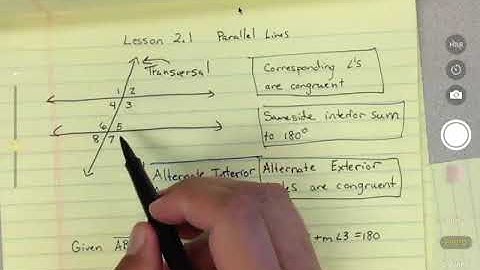 Lesson 2.1 Parallel Lines
Transversal
Corresponding ∠'s
are congruent
1 2
4 3
Sameside interior sum
to 180°
6 5
8 7
Alternate Interior
Alternate Exterior
are congruent
Given
+m∠3=180
HDR